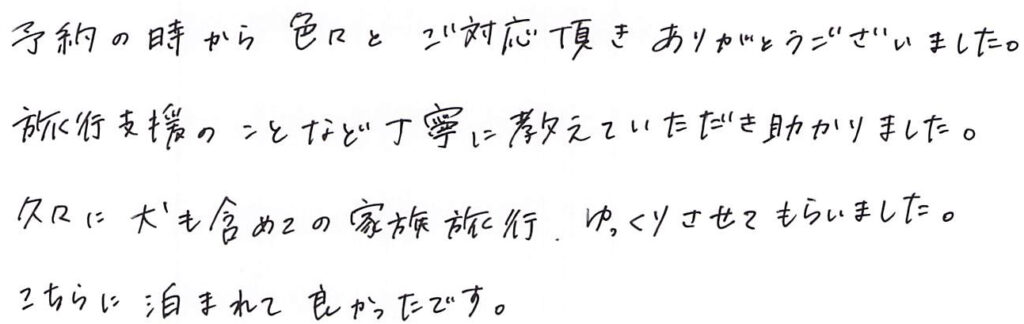 予約の時から 色々と ご対応頂き ありがとうございました。
旅行支援の ことなど丁寧に教えていただき助かりました。
久々に 犬も含めての 家族旅行. ゆっくりさせてもらいました。
こちらに 泊まれて 良かったです。